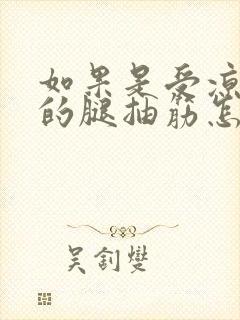 如果是受凉
的腿抽筋怎
吴钊燮